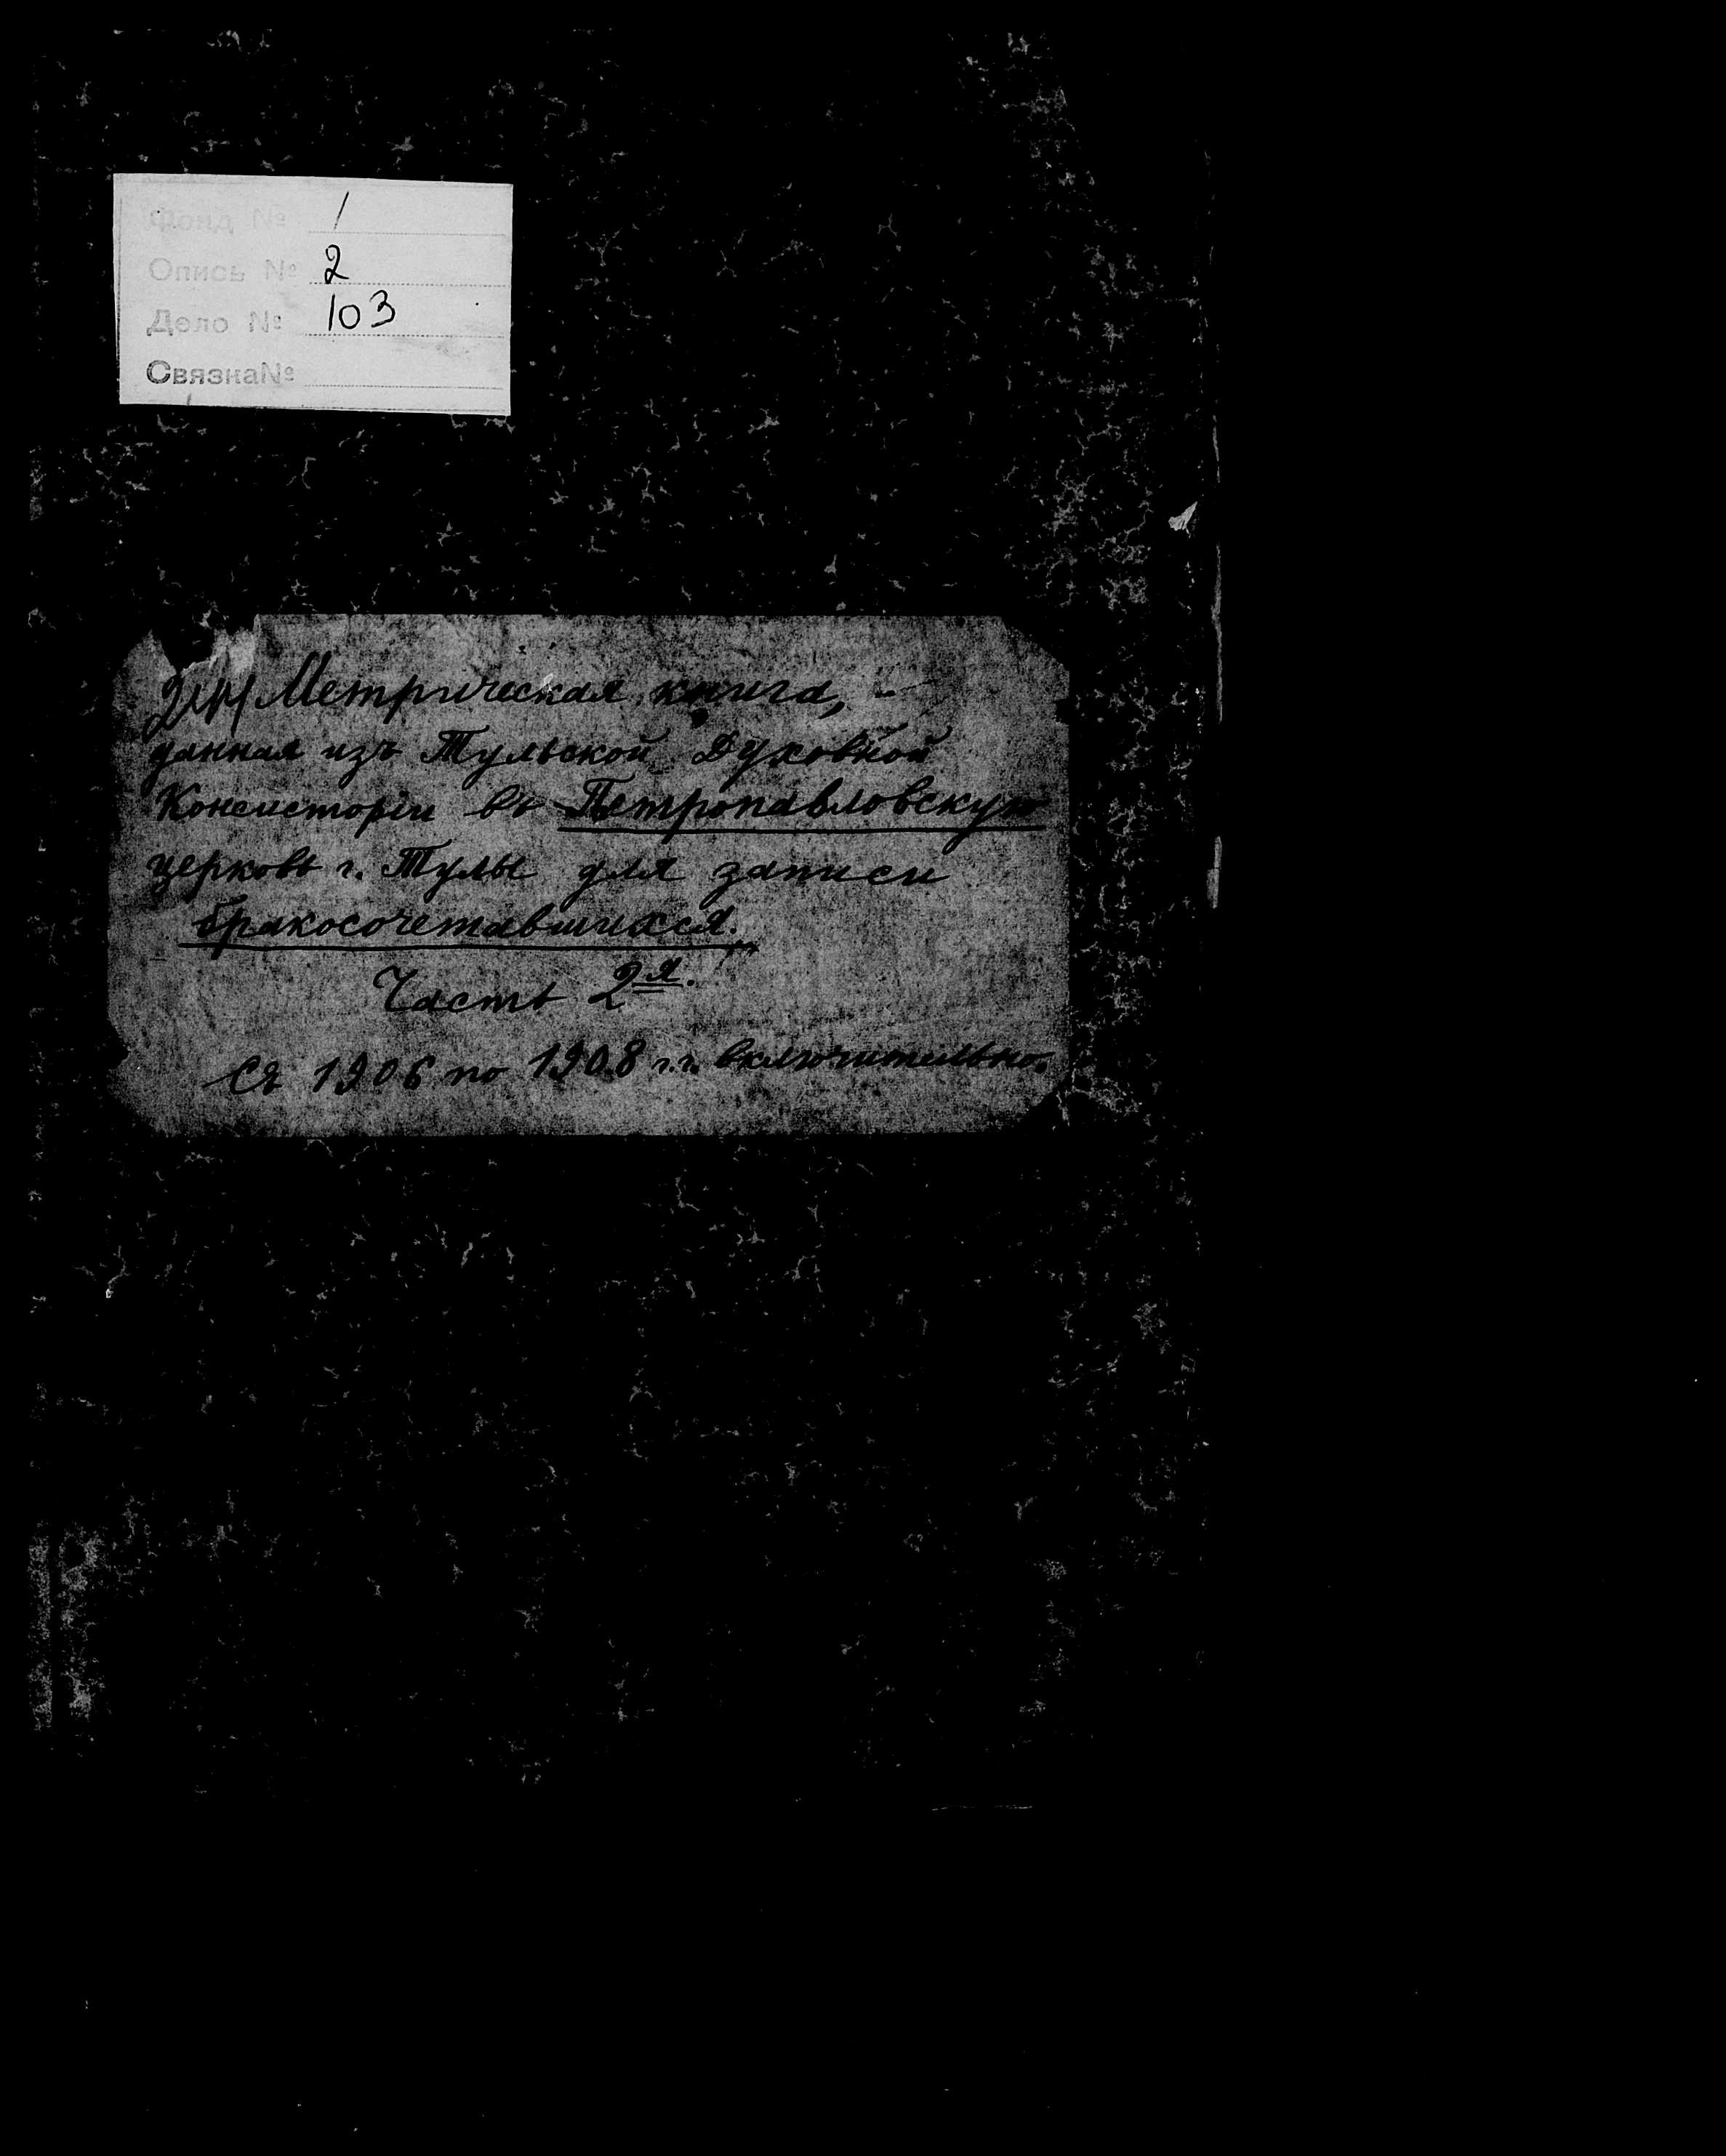 Фонд № 1
Опись № 2
Дело № 103
Связка №
Метрическая книга,
данная изъ Тульской Духовной
Консисторіи въ Петропавловскую
церковь г. Тулы для записи
бракосочетавшихся.
Часть 2я.
Съ 1906 по 1908 г.г. включительно.